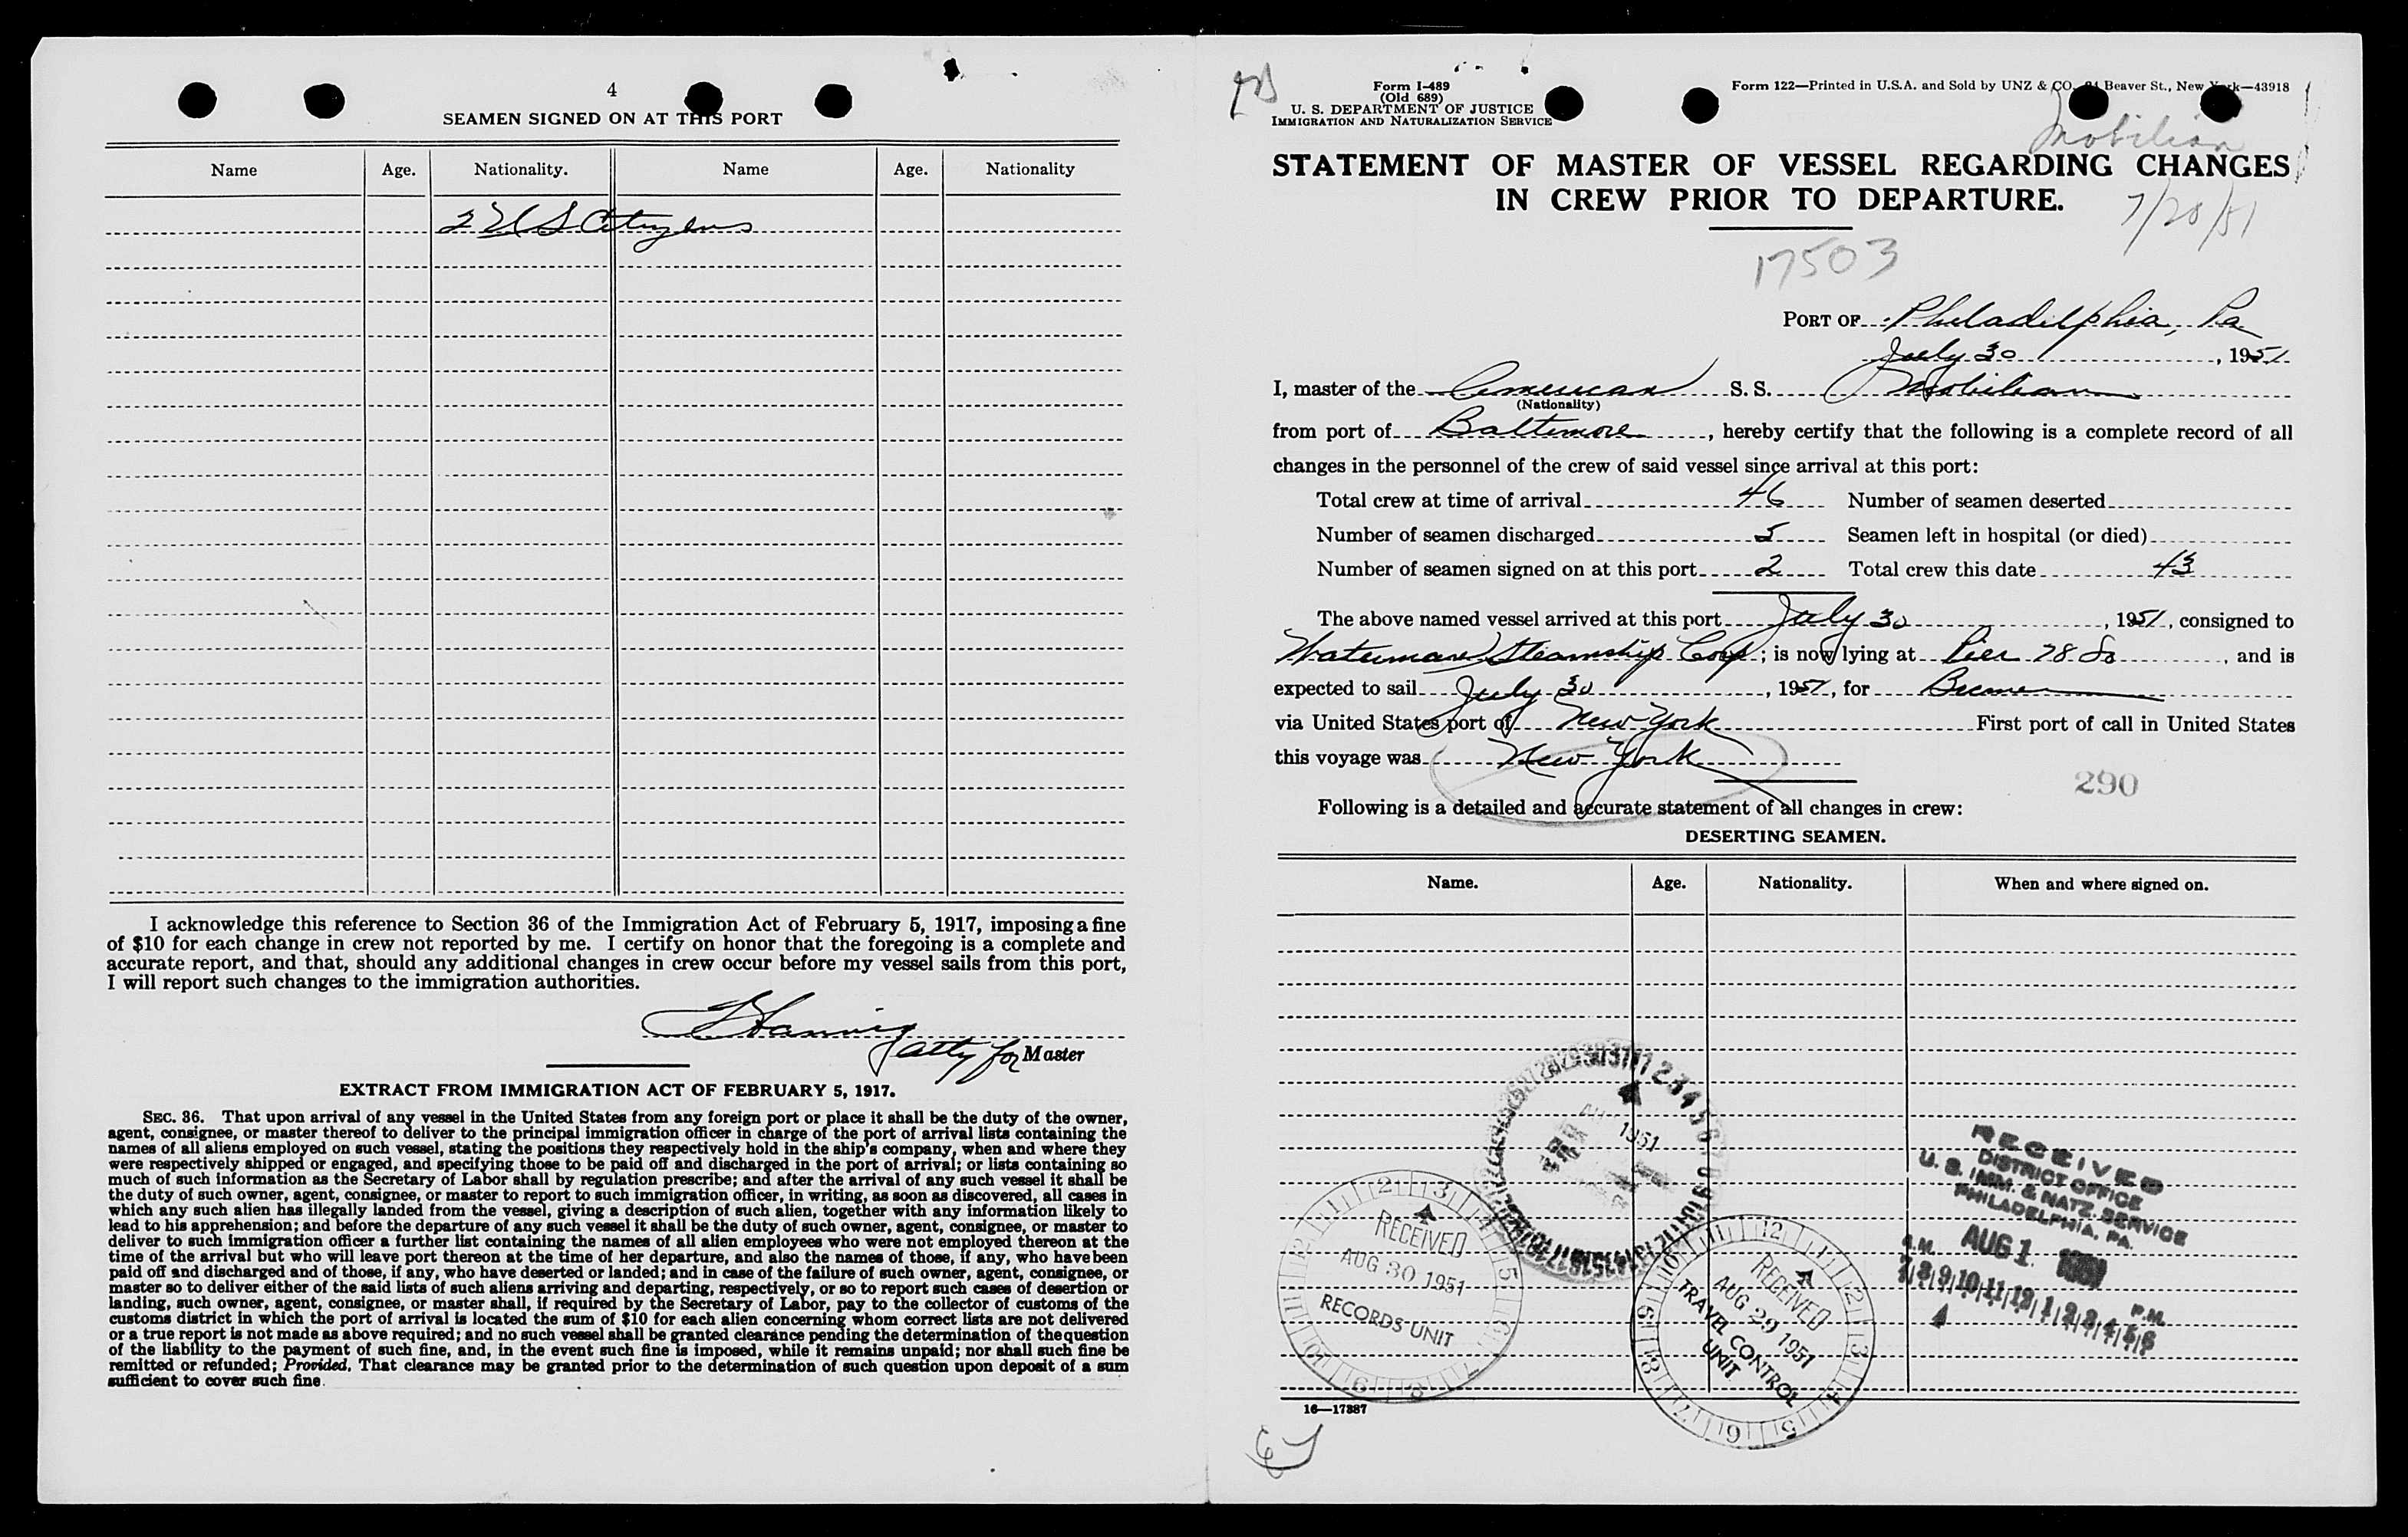 4
SEAMEN SIGNED ON AT THIS PORT
Name Age. Nationality. Name Age. Nationality
2 US Citizens
I acknowledge this reference to Section 36 of the Immigration Act of February 5, 1917, imposing a fine
of $10 for each change in crew not reported by me. I certify on honor that the foregoing is a complete and
accurate report, and that, should any additional changes in crew occur before my vessel sails from this port,
I will report such changes to the immigration authorities.
atty for Master
EXTRACT FROM IMMIGRATION ACT OF FEBRUARY 5, 1917.
SEC. 36. That upon arrival of any vessel in the United States from any foreign port or place it shall be the duty of the owner,
agent, consignee, or master thereof to deliver to the principal immigration officer in charge of the port of arrival lists containing the
names of all aliens employed on such vessel, stating the positions they respectively hold in the ship's company, when and where they
were respectively shipped or engaged, and specifying those to be paid off and discharged in the port of arrival; or lists containing so
much of such information as the Secretary of Labor shall by regulation prescribe; and after the arrival of any such vessel it shall be
the duty of such owner, agent, consignee, or master to report to such immigration officer, in writing, as soon as discovered, all cases in
which any such alien has illegally landed from the vessel, giving a description of such alien, together with any information likely to
lead to his apprehension; and before the departure of any such vessel it shall be the duty of such owner, agent, consignee, or master to
deliver to such immigration officer a further list containing the names of all alien employees who were not employed thereon at the
time of the arrival but who will leave port thereon at the time of her departure, and also the names of those, if any, who have been
paid off and discharged and of those, if any, who have deserted or landed; and in case of the failure of such owner, agent, consignee, or
master so to deliver either of the said lists of such aliens arriving and departing, respectively, or so to report such cases of desertion or
landing, such owner, agent, consignee, or master shall, if required by the Secretary of Labor, pay to the collector of customs of the
customs district in which the port of arrival is located the sum of $10 for each alien concerning whom correct lists are not delivered
or a true report is not made as above required; and no such vessel shall be granted clearance pending the determination of the question
of the liability to the payment of such fine, and, in the event such fine is imposed, while it remains unpaid; nor shall such fine be
remitted or refunded; Provided, That clearance may be granted prior to the determination of such question upon deposit of a sum
sufficient to cover such fine.
Form I-489
(Old 689)
U. S. DEPARTMENT OF JUSTICE
IMMIGRATION AND NATURALIZATION SERVICE
Form 122—Printed in U.S.A. and Sold by UNZ & CO. Beaver St., New York—43918
Mobilian
STATEMENT OF MASTER OF VESSEL REGARDING CHANGES
IN CREW PRIOR TO DEPARTURE.
7/28/51
17503
PORT OF Philadelphia, Pa
July 30, 1951
I, master of the American S. S. Mobilian
(Nationality)
from port of Baltimore, hereby certify that the following is a complete record of all
changes in the personnel of the crew of said vessel since arrival at this port:
Total crew at time of arrival 46 Number of seamen deserted
Number of seamen discharged 5 Seamen left in hospital (or died)
Number of seamen signed on at this port 2 Total crew this date 43
The above named vessel arrived at this port July 30, 1951, consigned to
Waterman Steamship Corp; is now lying at Pier 78 So, and is
expected to sail July 30, 1951, for Bremen
via United States port of New York First port of call in United States
this voyage was New York
290
Following is a detailed and accurate statement of all changes in crew:
DESERTING SEAMEN.
Name. Age. Nationality. When and where signed on.
1951
RECEIVED
AUG 30 1951
RECORDS UNIT
RECEIVED
AUG 29 1951
TRAVEL CONTROL
UNIT
RECEIVED
DISTRICT OFFICE
U. S. IMM. & NATZ. SERVICE
PHILADELPHIA, PA.
AUG 1 1951
A.M. P.M.
7|8|9|10|11|12|1|2|3|4|5|6
16—17387